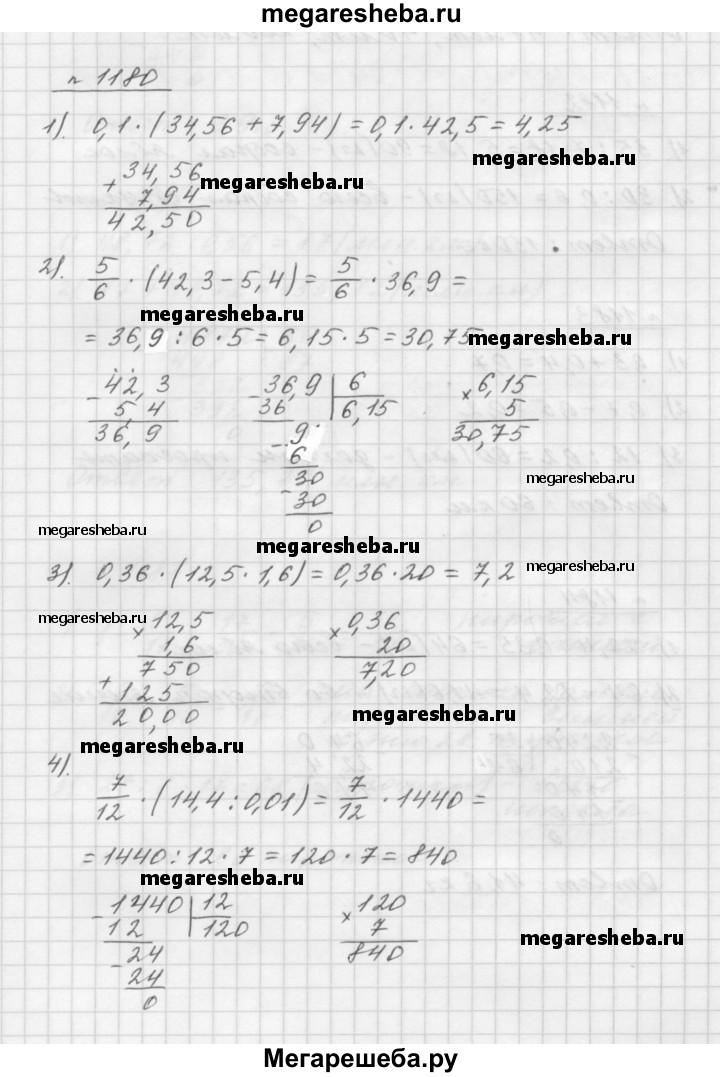 megaresheba.ru
№ 1180
1). 0,1 · (34,56 + 7,94) = 0,1 · 42,5 = 4,25
megaresheba.ru
34,56
megaresheba.ru
+ 7,94
42,50
2). 5/6 · (42,3 - 5,4) = 5/6 · 36,9 =
megaresheba.ru
= 36,9 : 6 · 5 = 6,15 · 5 = 30,75
megaresheba.ru
- 42,3 - 36,9 | 6 × 6,15
5,4 36 6,15 5
36,9 - 9 30,75
6
megaresheba.ru
30
- 30
0
megaresheba.ru
megaresheba.ru
3). 0,36 · (12,5 · 1,6) = 0,36 · 20 = 7,2
megaresheba.ru
megaresheba.ru
× 12,5 × 0,36
1,6 20
750 7,20
+ 125
20,00
megaresheba.ru
megaresheba.ru
4).
7/12 · (14,4 : 0,01) = 7/12 · 1440 =
= 1440 : 12 · 7 = 120 · 7 = 840
megaresheba.ru
- 1440 | 12 × 120
12 120 7
- 24 840
megaresheba.ru
24
0
Мегарешеба.ру